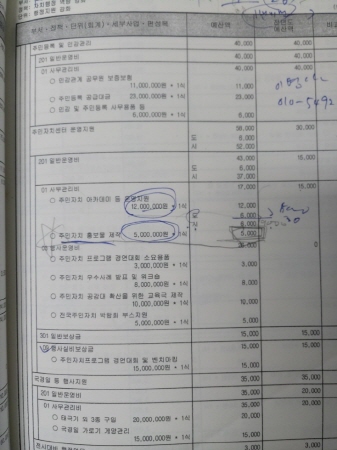 부서·정책·단위(회계)·세부사업·편성목 예산액
주민등록 및 민원관리 40,000 40,000
201 일반운영비 40,000 40,000
01 사무관리비 40,000 40,000
○ 민원관계 공무원 보증보험
11,000,000원 * 1식 11,000
○ 주민등록 공급대금
23,000,000원 * 1식 23,000
○ 민원 및 주민등록 사무용품 등
6,000,000원 * 1식 6,000
010-5492
주민자치센터 운영지원 58,000 30,000
도 6,000
시 52,000
201 일반운영비 43,000 15,000
도 6,000
시 37,000
01 사무관리비 17,000 15,000
○ 주민자치 아카데미 등 운영지원
12,000,000원 * 1식 12,000
○ 주민자치 홍보물 제작 5,000,000원 * 1식 5,000
행사운영비 26,000 0
○ 주민자치 프로그램 경연대회 소요물품
3,000,000원 * 1식 3,000
○ 주민자치 우수사례 발표 및 워크숍
8,000,000원 * 1식 8,000
○ 주민자치 공감대 확산을 위한 교육극 제작
10,000,000원 * 1식 10,000
○ 전국주민자치 박람회 부스지원
5,000,000원 * 1식 5,000
301 일반보상금 15,000 15,000
행사실비보상금 15,000 15,000
○ 주민자치프로그램 경연대회 및 벤치마킹
15,000,000원 * 1식 15,000
국경일 등 행사지원 35,000 35,000
201 일반운영비 35,000 35,000
01 사무관리비 35,000 20,000
○ 태극기 외 3종 구입 20,000,000원 * 1식 20,000
○ 국경일 가로기 게양관리
15,000,000원 * 1식 15,000